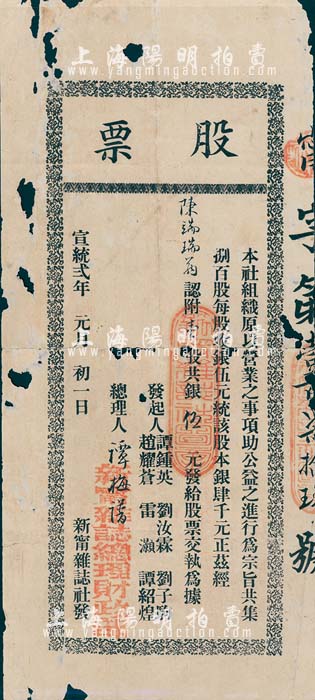 上海陽明拍賣
www.yangmingauction.com
股票
本社組織原以營業之事項助公益之進行爲宗旨共集
捌百股每股收銀伍元統該股本銀肆千元正茲經
陳端瑞翁認附壹股共銀伍元發給股票交執爲據
發起人 譚鍾英 劉汝霖 劉子
趙耀蒼 雷灝 譚紹煌
總理人 譚梅
宣統弍年元月初一日
新甯雜誌社發
字第 號
新甯雜誌總理財政
上海陽明拍賣
www.yangmingauction.com
上海陽明拍賣
www.yangmingauction.com